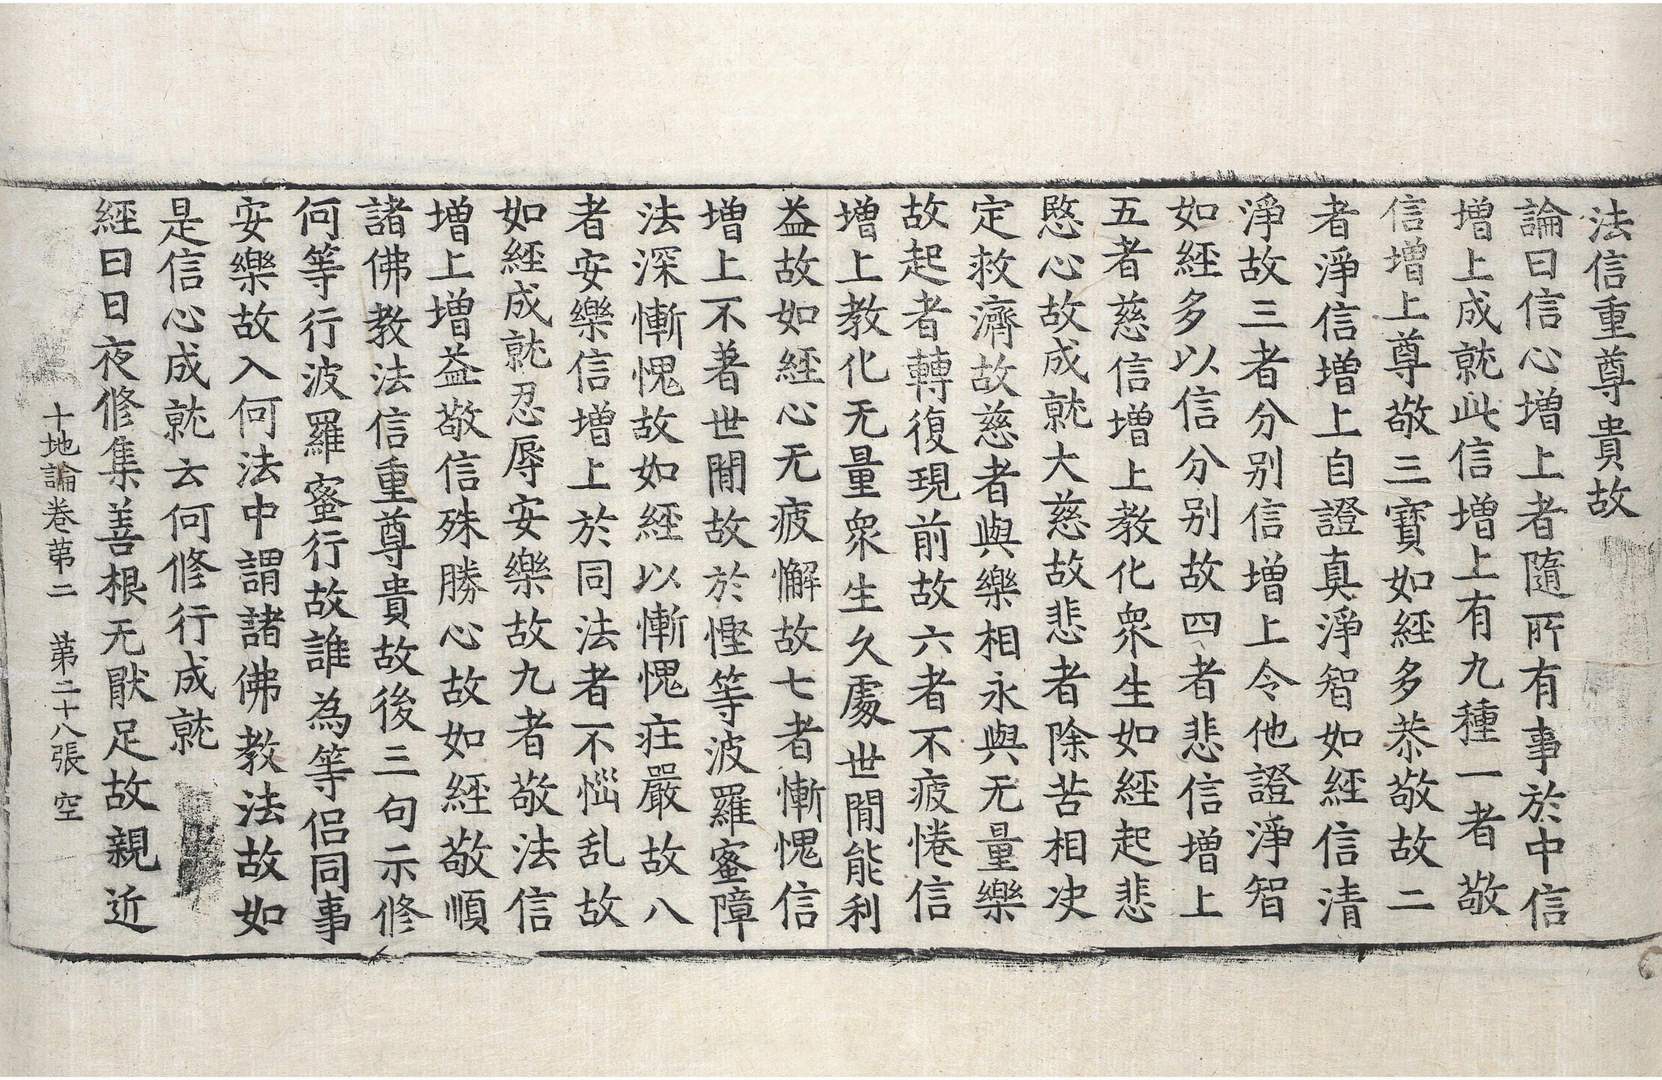 法信重尊貴故
論曰信心增上者隨所有事於中信
增上成就此信增上有九種一者敬
信增上尊敬三寶如經多恭敬故二
者淨信增上自證真淨智如經信清
淨故三者分别信增上令他證淨智
如經多以信分别故四者悲信增上
五者慈信增上教化衆生如經起悲
愍心故成就大慈故悲者除苦相决
定救濟故慈者與樂相永與无量樂
故起者轉復現前故六者不疲惓信
增上教化无量衆生久處世閒能利
益故如經心无疲懈故七者慚愧信
增上不著世閒故於慳等波羅蜜障
法深慚愧故如經以慚愧庄嚴故八
者安樂信增上於同法者不惱乱故
如經成就忍辱安樂故九者敬法信
增上增益敬信殊勝心故如經敬順
諸佛教法信重尊貴故後三句示修
何等行波羅蜜行故誰為等侣同事
安樂故入何法中謂諸佛教法故如
是信心成就云何修行成就
經曰日夜修集善根无猒足故親近
十地論卷苐二　苐二十八張　空